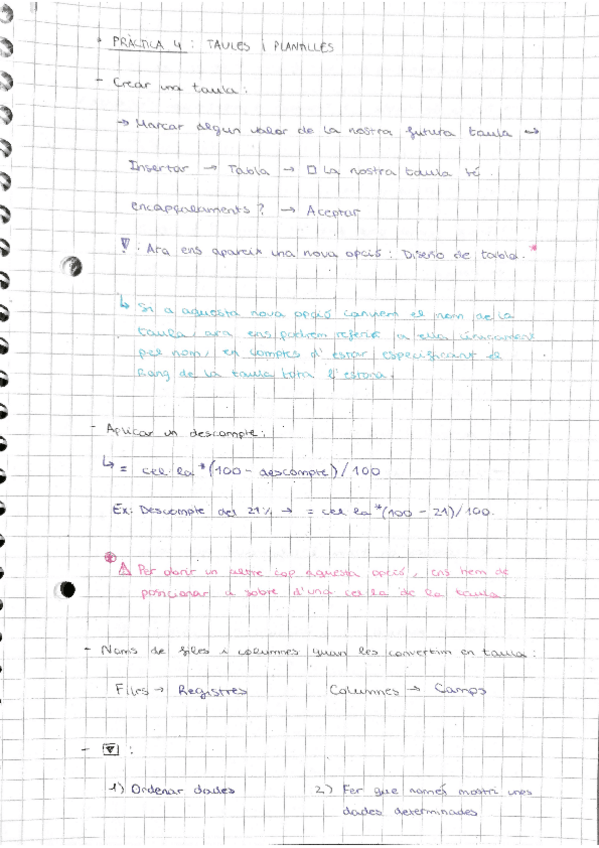 * PRÀCTICA 4: TAULES i PLANTILLES
- Crear una taula:
→ Marcar algun valor de la nostra futura taula →
Insertar → Tabla → □ La nostra taula té
encapçalaments? → Aceptar
▽! : Ara ens apareix una nova opció: Diseño de tabla. *
↳ Si a aquesta nova opció canviem el nom de la
taula, ara ens podrem referir a ella únicament
pel nom, en comptes d'estar especificant el
rang de la taula tota l'estona.
- Aplicar un descompte:
↳ = cel·la * (100 - descompte) / 100
Ex: Descompte del 21% → = cel·la * (100 - 21)/100.
* ⚠ Per obrir un altre cop aquesta opció, ens hem de
posicionar a sobre d'una cel·la de la taula.
- Noms de files i columnes quan les convertim en taula:
Files → Registres Columnes → Camps
- ▼ :
1) Ordenar dades 2) Fer que només mostri unes
dades determinades